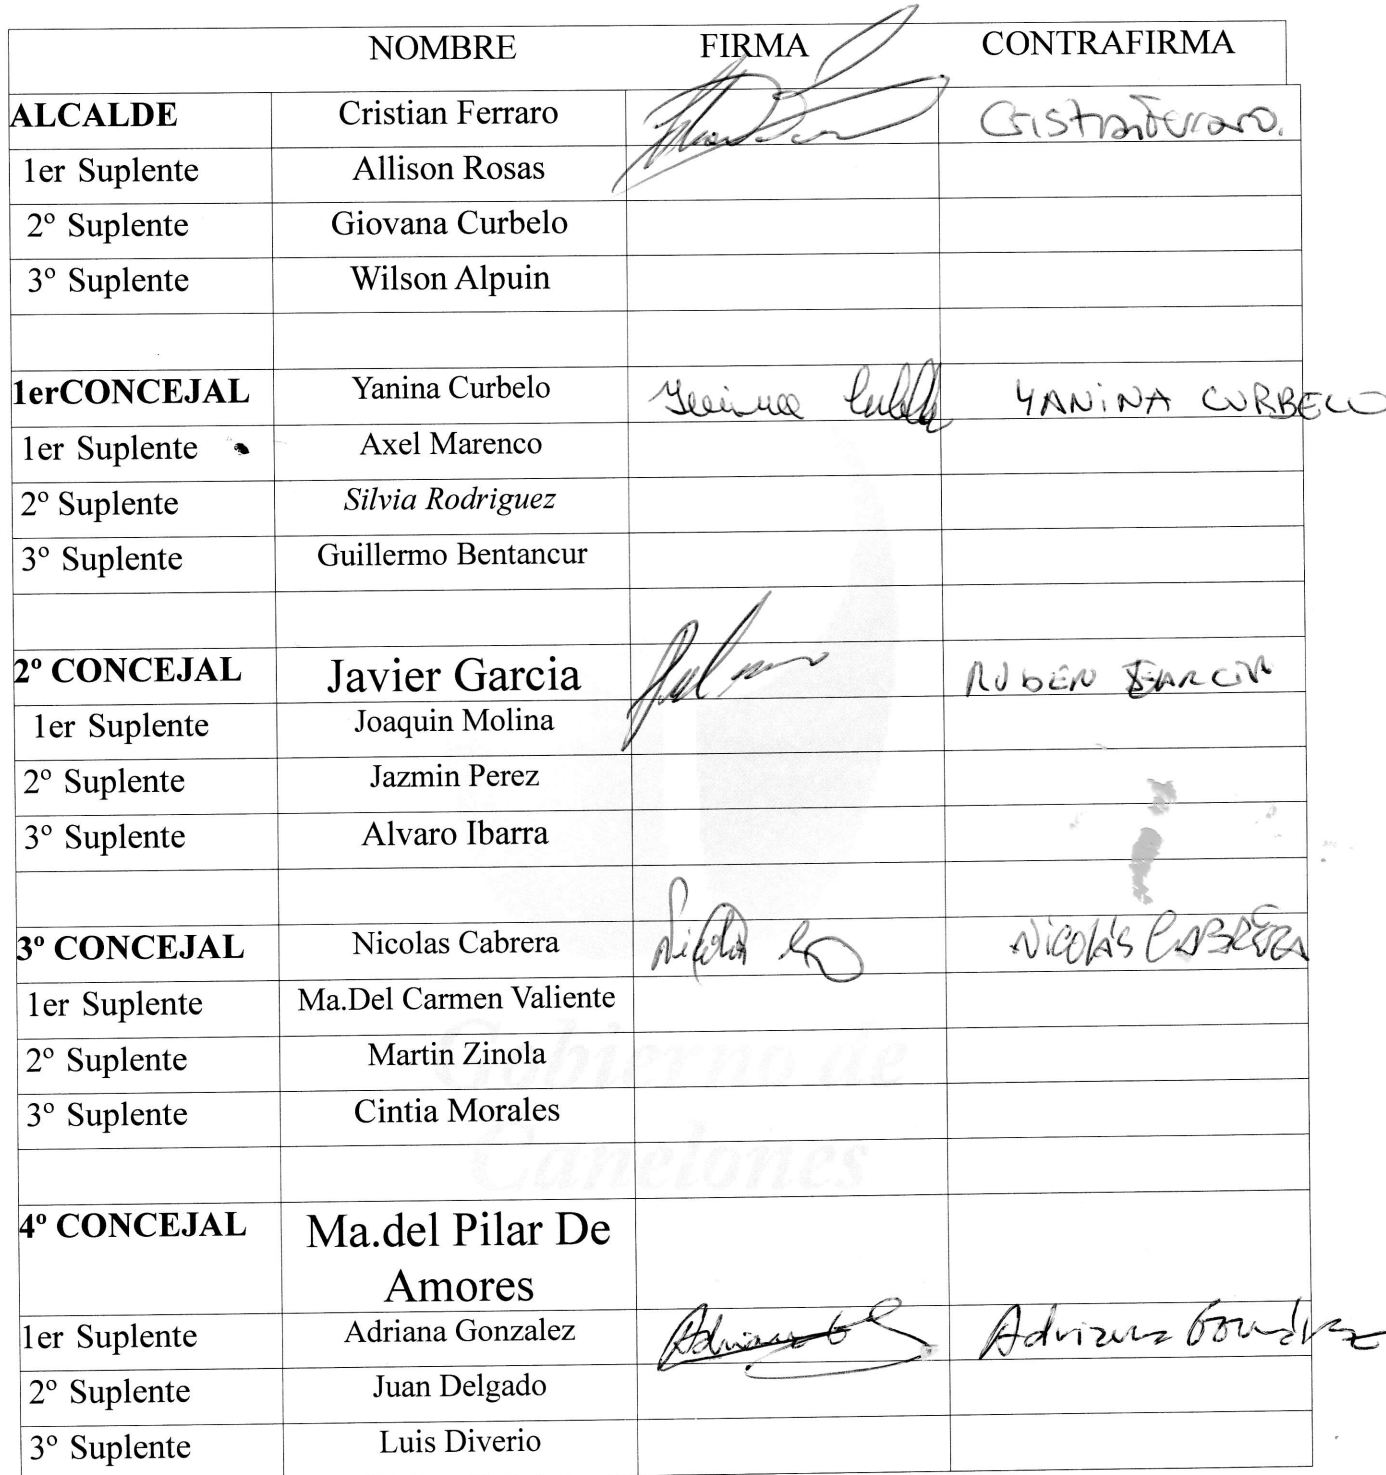 NOMBRE FIRMA CONTRAFIRMA
ALCALDE Cristian Ferraro Cristian Ferraro.
1er Suplente Allison Rosas
2º Suplente Giovana Curbelo
3º Suplente Wilson Alpuin
1erCONCEJAL Yanina Curbelo YANINA CURBELO
1er Suplente Axel Marenco
2º Suplente Silvia Rodriguez
3º Suplente Guillermo Bentancur
2º CONCEJAL Javier Garcia RUBEN GARCIA
1er Suplente Joaquin Molina
2º Suplente Jazmin Perez
3º Suplente Alvaro Ibarra
3º CONCEJAL Nicolas Cabrera NICOLÁS CABRERA
1er Suplente Ma.Del Carmen Valiente
2º Suplente Martin Zinola
3º Suplente Cintia Morales
Gobierno de
Canelones
4º CONCEJAL Ma.del Pilar De
Amores
1er Suplente Adriana Gonzalez Adriana González
2º Suplente Juan Delgado
3º Suplente Luis Diverio